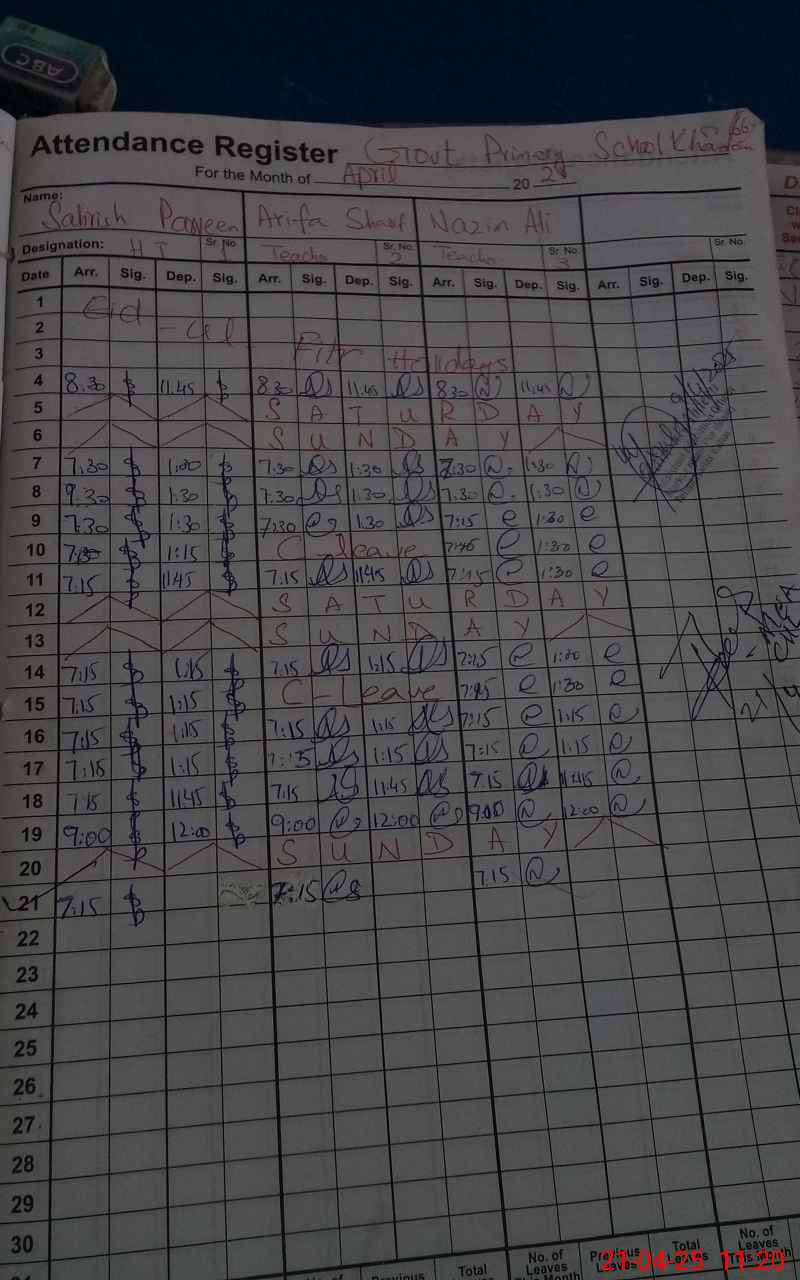 ABC
Attendance Register Govt Primary School
For the Month of April 20
Name: Sahrish Parveen Arifa Sharif Nazim Ali
Designation: HT Sr. No. 1 Teacher Sr. No. 2 Teacher Sr. No. 3 Sr. No.
Date Arr. Sig. Dep. Sig. Arr. Sig. Dep. Sig. Arr. Sig. Dep. Sig. Arr. Sig. Dep. Sig.
1 Eid
2 - ul
3 Fitr Holidays
4 8.30 11.45 8.30 11.45 8.30 11.45
5 SATURDAY
6 SUNDAY
7 7.30 1:30 7:30 1:30 7:30 1:30
8 9.30 1:30 7:30 1.30 7.30 1:30
9 7:30 1:30 7:30 1.30 7:15 1:30
10 7:30 1:15 C-leave 7:45 1:30
11 7:15 1145 7:15 1145 7:15 1:30
12 SATURDAY
13 SUNDAY
14 7:15 1:15 7:15 1:15 7:15 1:30
15 7:15 1:15 C-Leave 7:15 1:30
16 7:15 1:15 7:15 1:15 7:15 1:15
17 7:15 1:15 7:15 1:15 7:15 1:15
18 7:15 1145 7:15 1145 7.15 1145
19 9:00 12:00 9:00 12:00 9:00 12:00
20 SUNDAY
21 7:15 7:15 7.15
22
23
24
25
26
27
28
29
30
No. of Previous Total No. of Leaves This Month Previous Leaves Total Leaves No. of Leaves This Month
21-04-25 11:20